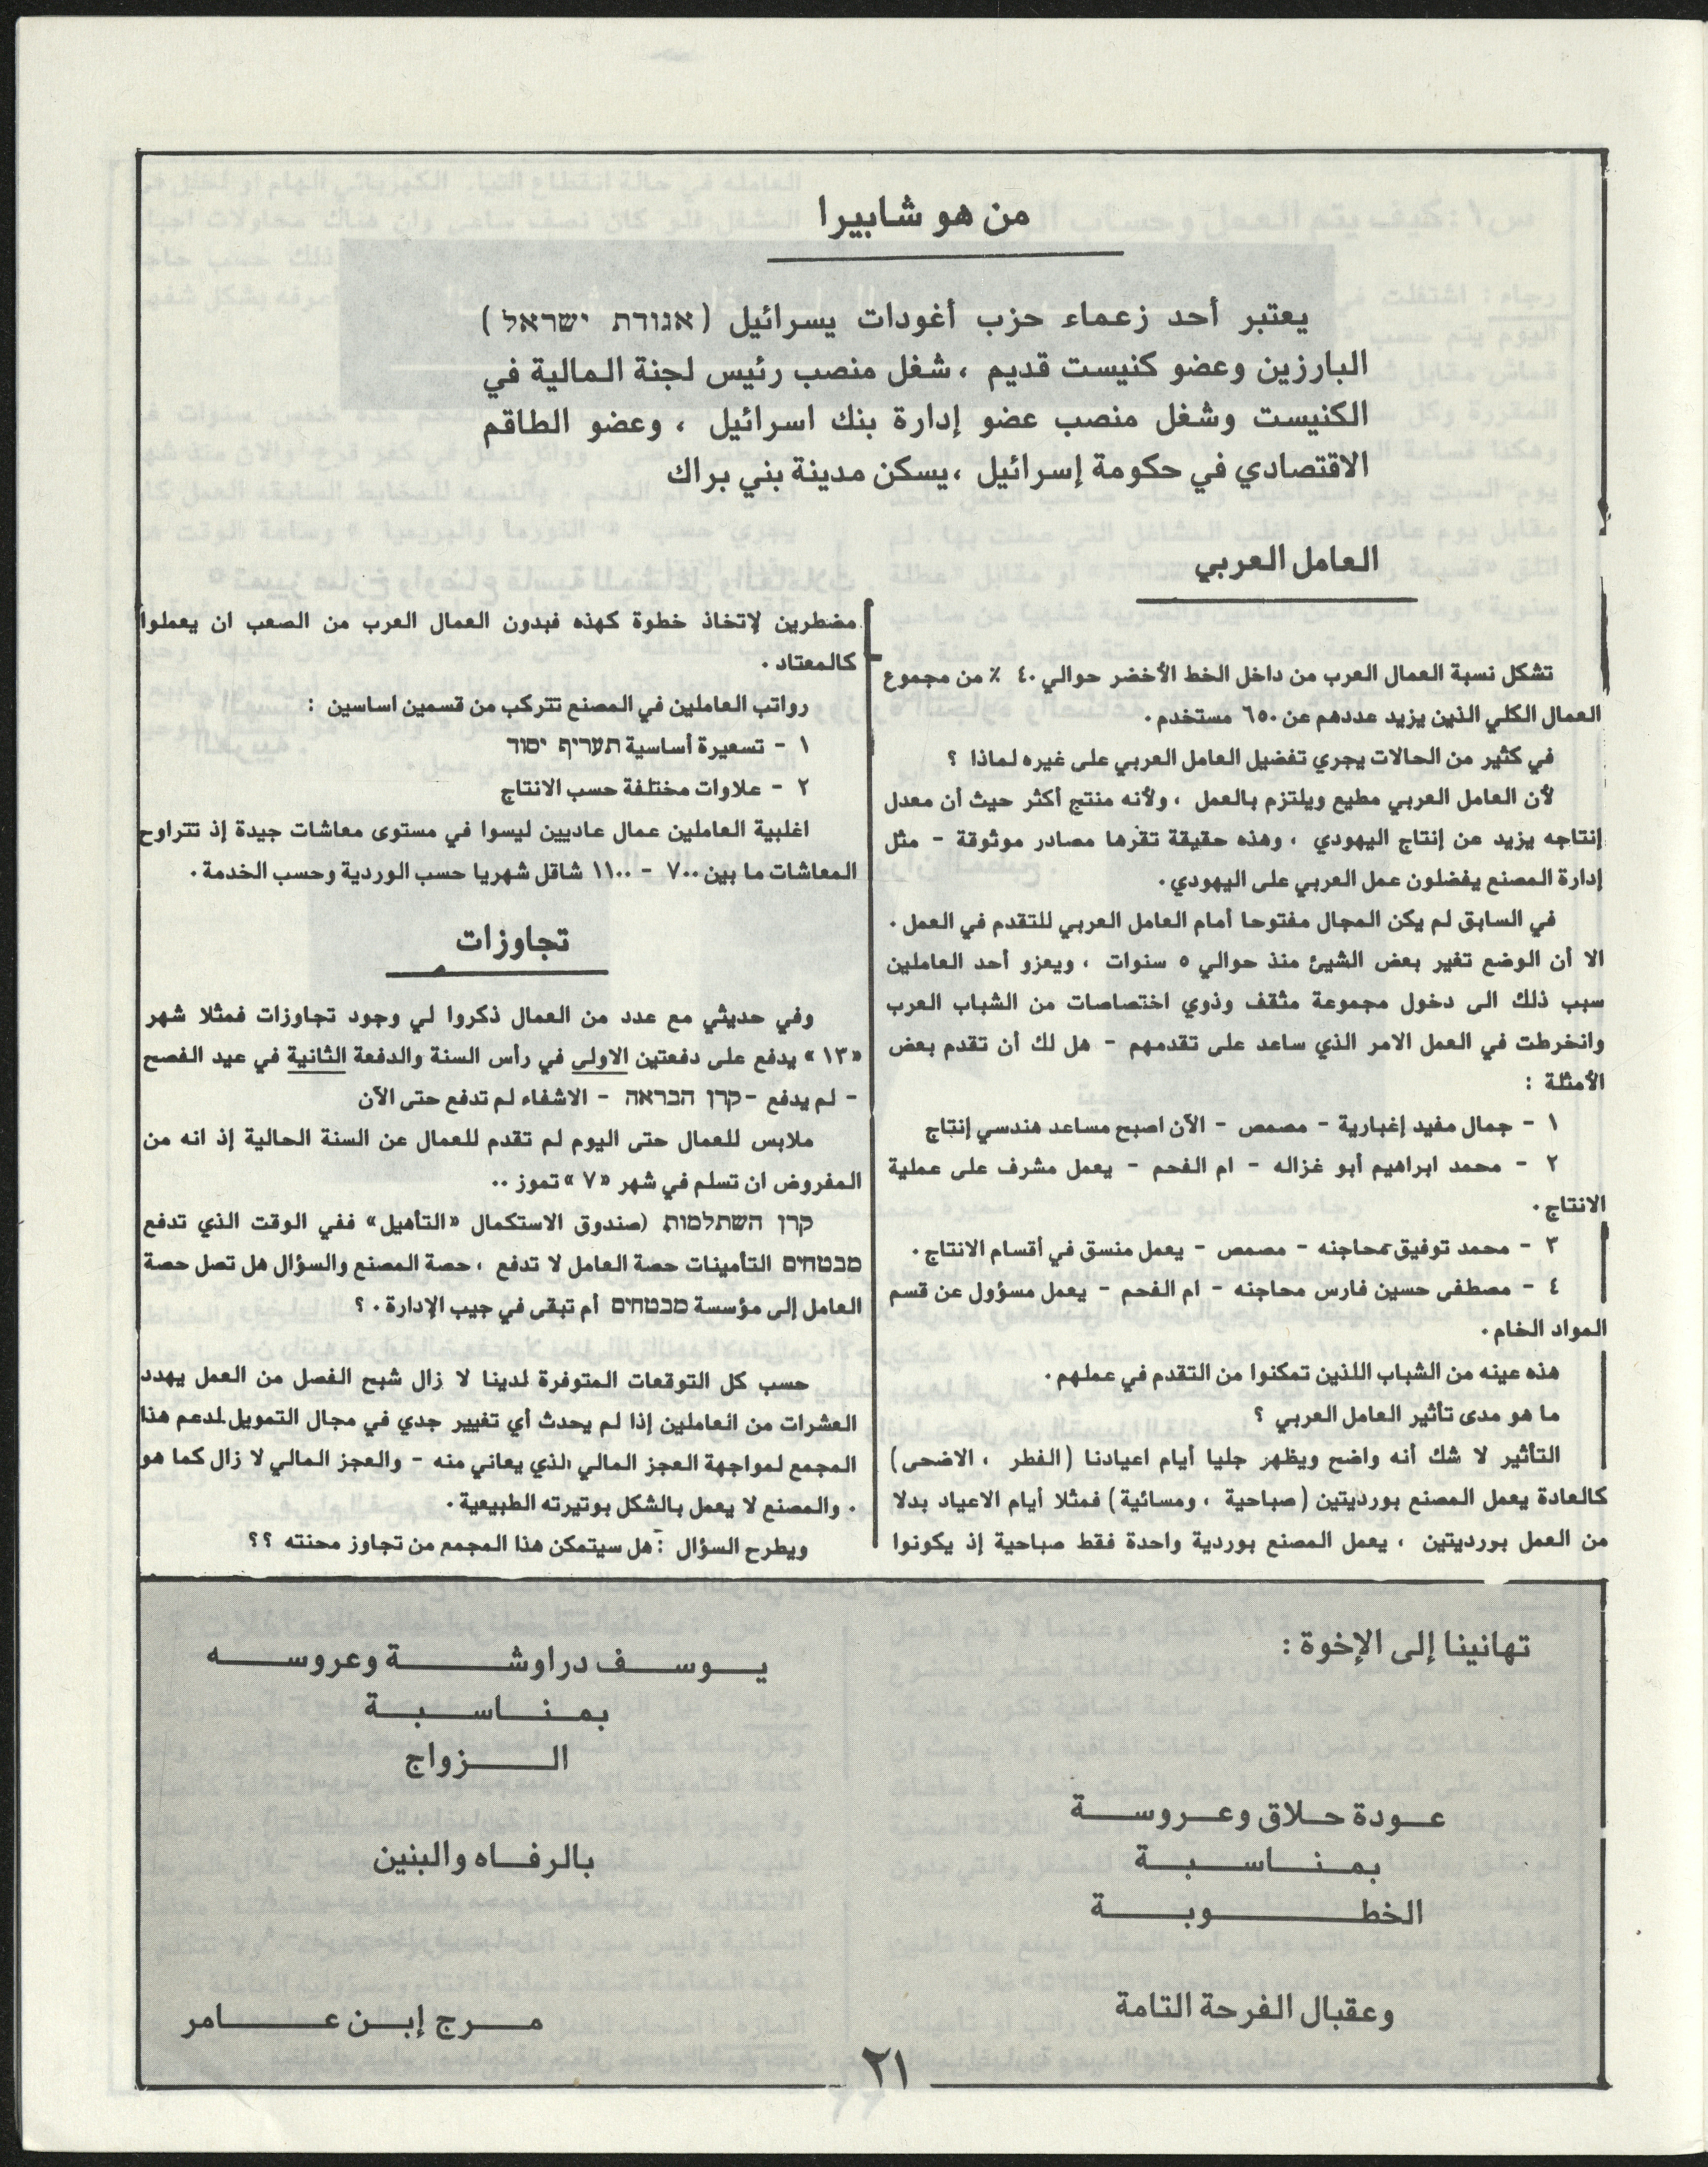 من هو شابيرا
يعتبر أحد زعماء حزب أغودات يسرائيل (אגודת ישראל)
البارزين وعضو كنيست قديم ، شغل منصب رئيس لجنة المالية في
الكنيست وشغل منصب عضو إدارة بنك اسرائيل ، وعضو الطاقم
الاقتصادي في حكومة إسرائيل ،يسكن مدينة بني براك
العامل العربي
تشكل نسبة العمال العرب من داخل الخط الأخضر حوالي ٤٠ ٪ من مجموع
العمال الكلي الذين يزيد عددهم عن ٦٥٠ مستخدم .
في كثير من الحالات يجري تفضيل العامل العربي على غيره لماذا ؟
لأن العامل العربي مطيع ويلتزم بالعمل ، ولأنه منتج أكثر حيث أن معدل
إنتاجه يزيد عن إنتاج اليهودي ، وهذه حقيقة تقرها مصادر موثوقة - مثل
إدارة المصنع يفضلون عمل العربي على اليهودي .
في السابق لم يكن المجال مفتوحا أمام العامل العربي للتقدم في العمل .
الا أن الوضع تغير بعض الشيئ منذ حوالي ٥ سنوات ، ويعزو أحد العاملين
سبب ذلك الى دخول مجموعة مثقف وذوي اختصاصات من الشباب العرب
وانخرطت في العمل الامر الذي ساعد على تقدمهم - هل لك أن تقدم بعض
الأمثلة :
١ - جمال مفيد إغبارية - مصمص - الآن اصبح مساعد هندسي إنتاج
٢ - محمد ابراهيم أبو غزاله - ام الفحم - يعمل مشرف على عملية
الانتاج .
٣ - محمد توفيق محاجنه - مصمص - يعمل منسق في أقسام الانتاج .
٤ - مصطفى حسين فارس محاجنه - ام الفحم - يعمل مسؤول عن قسم
المواد الخام .
هذه عينه من الشباب اللذين تمكنوا من التقدم في عملهم .
ما هو مدى تأثير العامل العربي ؟
التأثير لا شك أنه واضح ويظهر جليا أيام اعيادنا (الفطر ، الاضحى)
كالعادة يعمل المصنع بورديتين (صباحية ، ومسائية) فمثلا أيام الاعياد بدلا
من العمل بورديتين ، يعمل المصنع بوردية واحدة فقط صباحية إذ يكونوا
مضطرين لإتخاذ خطوة كهذه فبدون العمال العرب من الصعب ان يعملوا
كالمعتاد .
رواتب العاملين في المصنع تتركب من قسمين اساسين :
١ - تسعيرة أساسية תעריף יסוד
٢ - علاوات مختلفة حسب الانتاج
اغلبية العاملين عمال عاديين ليسوا في مستوى معاشات جيدة إذ تتراوح
المعاشات ما بين ٧٠٠ - ١١٠٠ شاقل شهريا حسب الوردية وحسب الخدمة .
تجاوزات
وفي حديثي مع عدد من العمال ذكروا لي وجود تجاوزات فمثلا شهر
«١٣» يدفع على دفعتين الاولى في رأس السنة والدفعة الثانية في عيد الفصح
- لم يدفع - קרן הבראה - الاشفاء لم تدفع حتى الآن
ملابس للعمال حتى اليوم لم تقدم للعمال عن السنة الحالية إذ انه من
المفروض ان تسلم في شهر «٧» تموز ..
קרן השתלמות (صندوق الاستكمال «التأهيل» ففي الوقت الذي تدفع
מבטחים التأمينات حصة العامل لا تدفع ، حصة المصنع والسؤال هل تصل حصة
العامل إلى مؤسسة מבטחים أم تبقى في جيب الإدارة . ؟
حسب كل التوقعات المتوفرة لدينا لا زال شبح الفصل من العمل يهدد
العشرات من العاملين إذا لم يحدث أي تغيير جدي في مجال التمويل لدعم هذا
المجمع لمواجهة العجز المالي الذي يعاني منه - والعجز المالي لا زال كما هو
. والمصنع لا يعمل بالشكل بوتيرته الطبيعية .
ويطرح السؤال : هل سيتمكن هذا المجمع من تجاوز محنته ؟؟
تهانينا إلى الإخوة :
عـودة حـلاق وعـروسـة
بـمـنـاسـبـة
الخطـوبـة
وعقبال الفرحة التامة
يـوسـف دراوشـة وعروسـه
بمـنـاسـبـة
الـزواج
بالرفـاه والبنين
مـرج إبـن عـامر
٢١